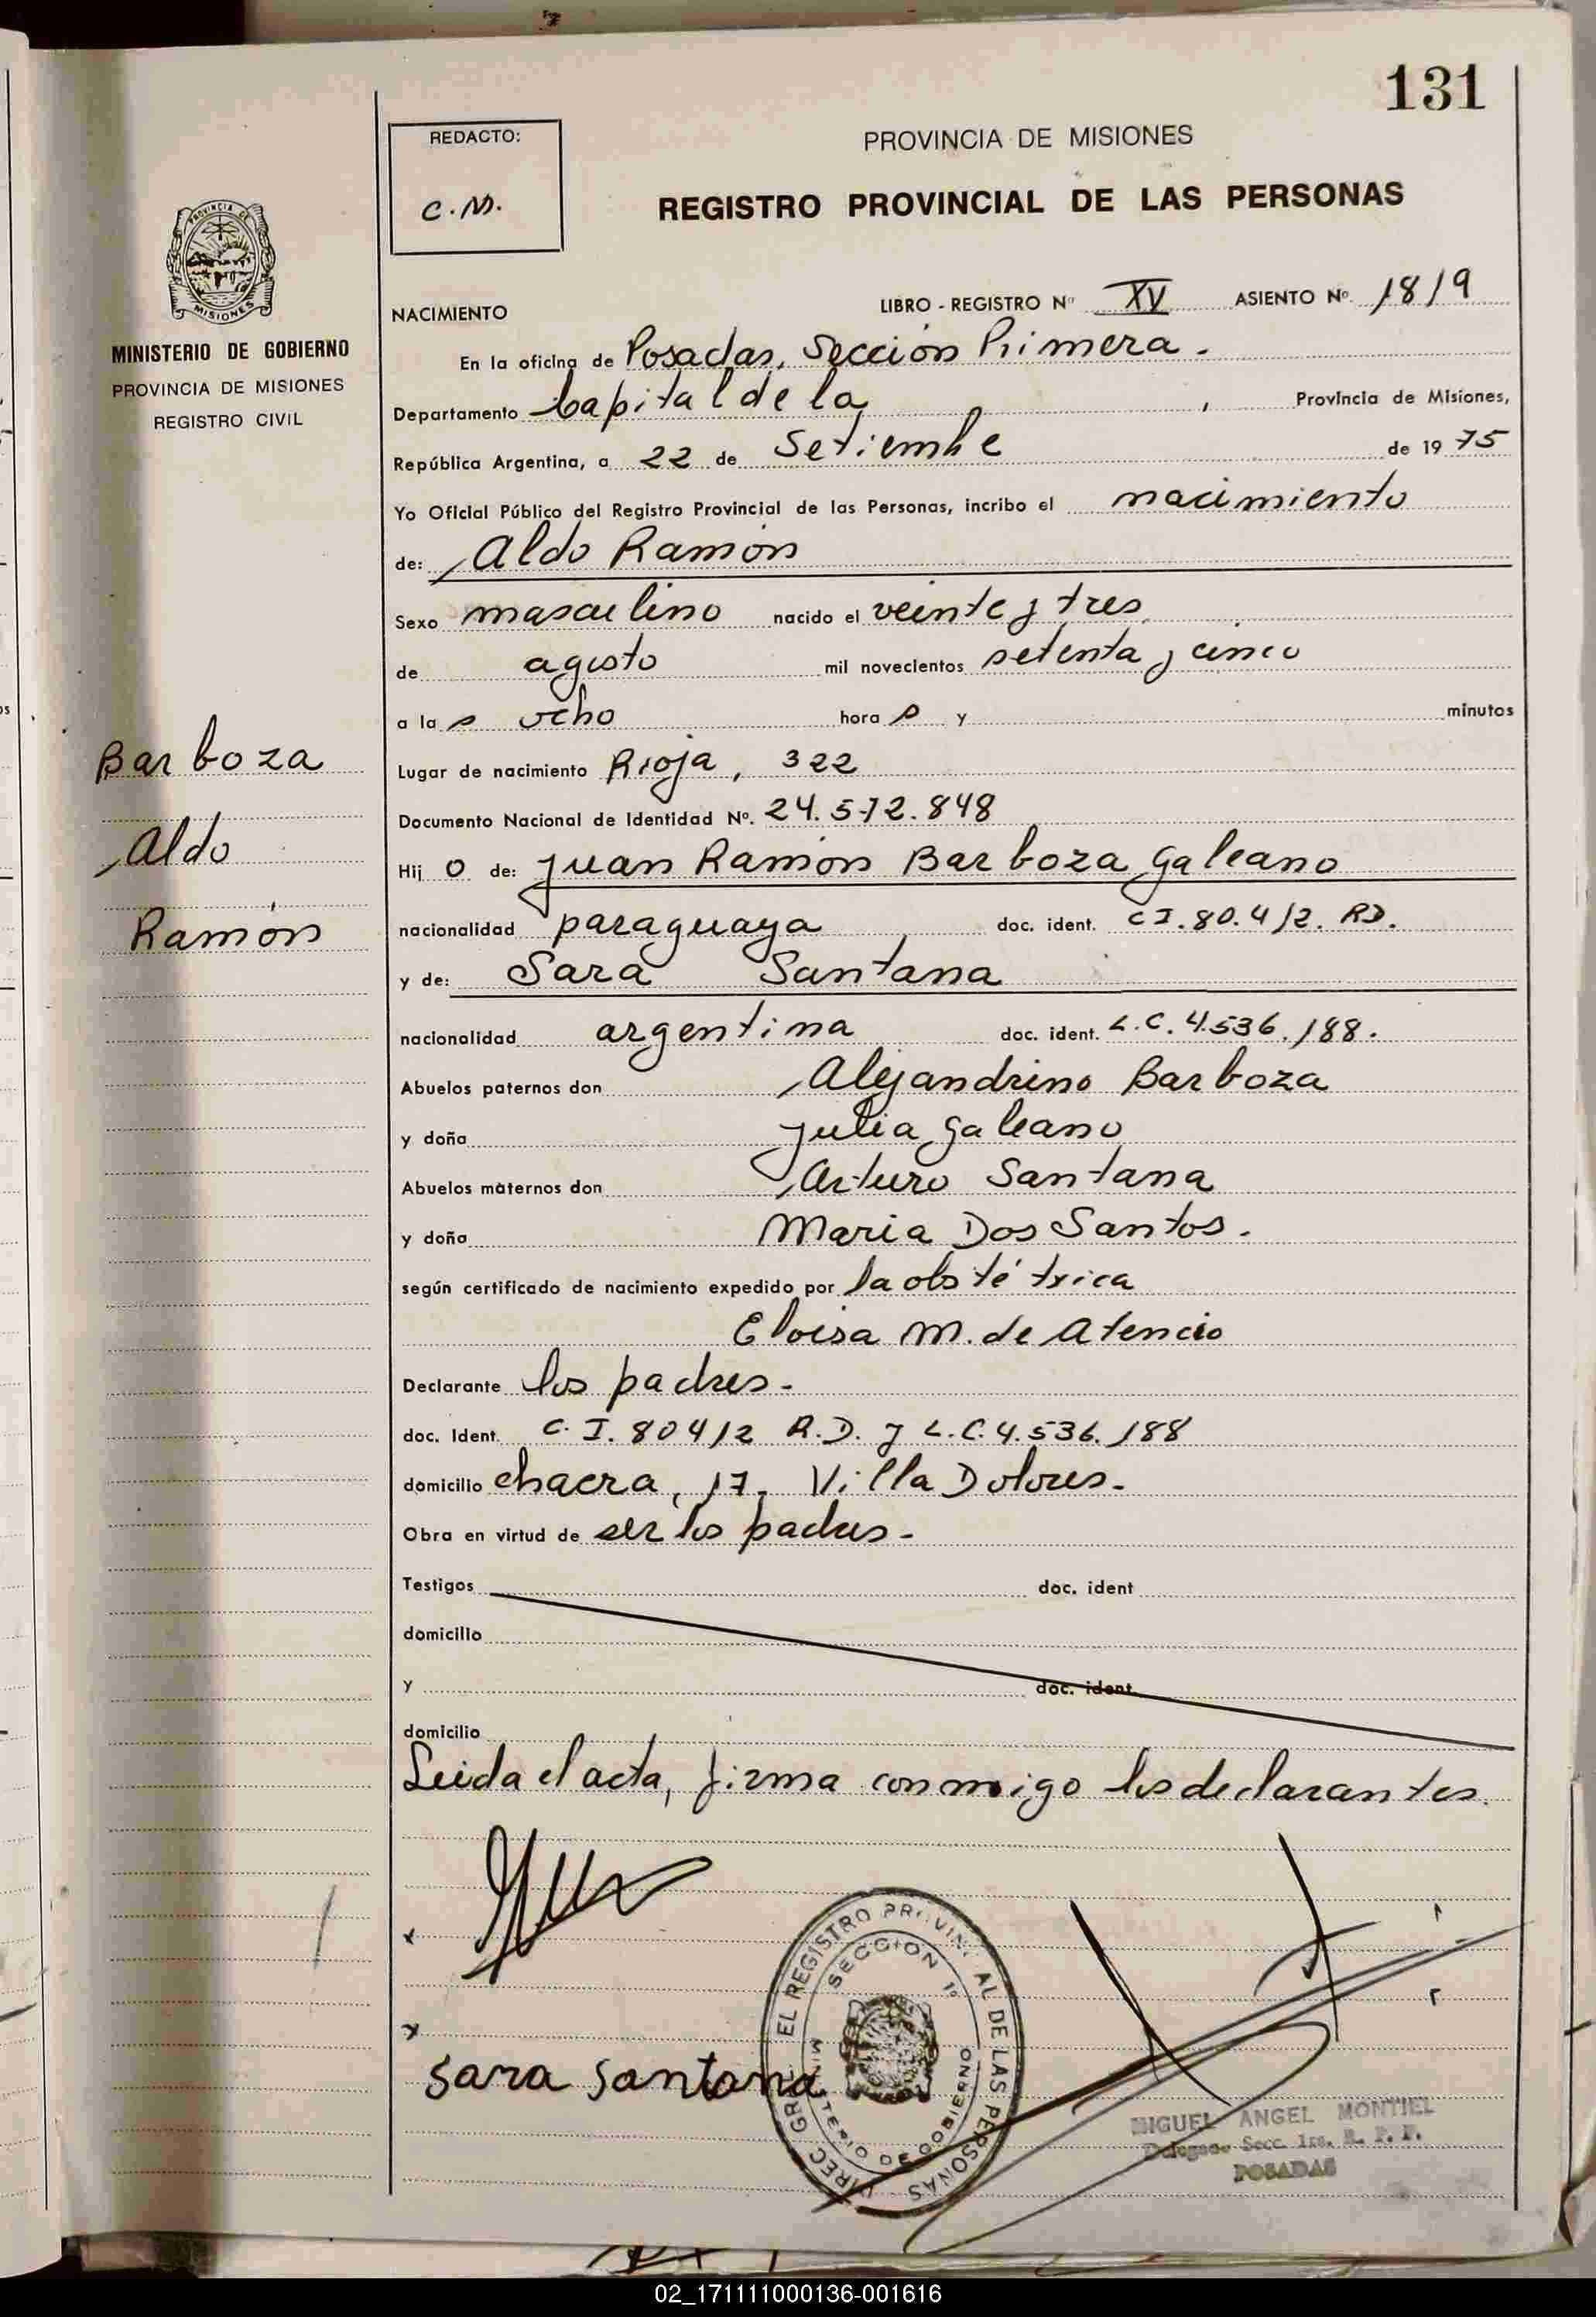 131
REDACTO:
C.M.
PROVINCIA DE MISIONES
REGISTRO PROVINCIAL DE LAS PERSONAS
PROVINCIA DE
MISIONES
MINISTERIO DE GOBIERNO
PROVINCIA DE MISIONES
REGISTRO CIVIL
NACIMIENTO LIBRO - REGISTRO Nº XV ASIENTO Nº 1819
En la oficina de Posadas, Sección Primera.
Departamento Capital de la, Provincia de Misiones,
República Argentina, a 22 de Setiembre de 1975
Yo Oficial Público del Registro Provincial de las Personas, incribo el nacimiento
de: Aldo Ramón
Sexo masculino nacido el veinte y tres
de agosto mil novecientos setenta y cinco
a las ocho horas y minutos
Barboza
Aldo
Ramón
Lugar de nacimiento Rioja, 322
Documento Nacional de Identidad Nº. 24.572.848
Hijo de: Juan Ramón Barboza Galeano
nacionalidad paraguaya doc. ident. CI. 80.412. RD.
y de: Sara Santana
nacionalidad argentina doc. ident. L.C. 4.536.188.
Abuelos paternos don Alejandrino Barboza
y doña Julia Galeano
Abuelos maternos don Arturo Santana
y doña Maria Dos Santos.
según certificado de nacimiento expedido por la obstétrica
Eloisa M. de Atencio
Declarante los padres-
doc. Ident. C. I. 80412 R.D. y L.C. 4.536.188
domicilio chacra, 17. Villa Dolores-
Obra en virtud de ser los padres-
Testigos doc. ident
domicilio
y doc. ident
domicilio
Leida el acta, firma conmigo los declarantes.
x
x
Sara Santana
DIREC. GRAL. DEL REGISTRO PROVINCIAL DE LAS PERSONAS
SECCION 1º
MINISTERIO DE GOBIERNO
MIGUEL ANGEL MONTIEL
Delegado Secc. 1ra. R. P. P.
POSADAS
02_171111000136-001616